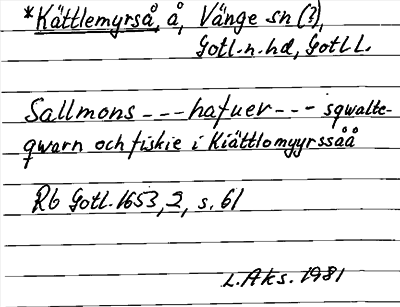 *Kättlemyrså, å, Vänge sn (?),
Gotl. n. hd, Gotl L.
Sallmons --- hafuer --- sqwalte-
qwarn och fiskie i Kiättlomyyrssåå
Rb Gotl. 1653, 2, s. 61
L. Aks. 1981